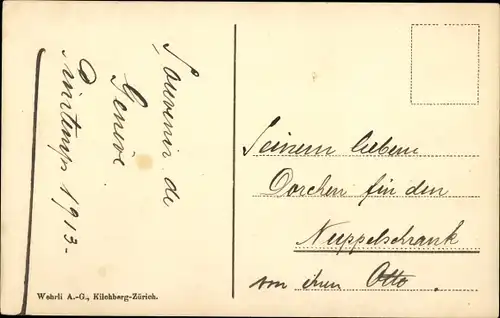 Souvenir de
Genève
Printemps 1913-
Wehrli A.-G., Kilchberg-Zürich.
Seinem lieben
Dorchen für den
Nuppelschrank
von ihrem Otto.